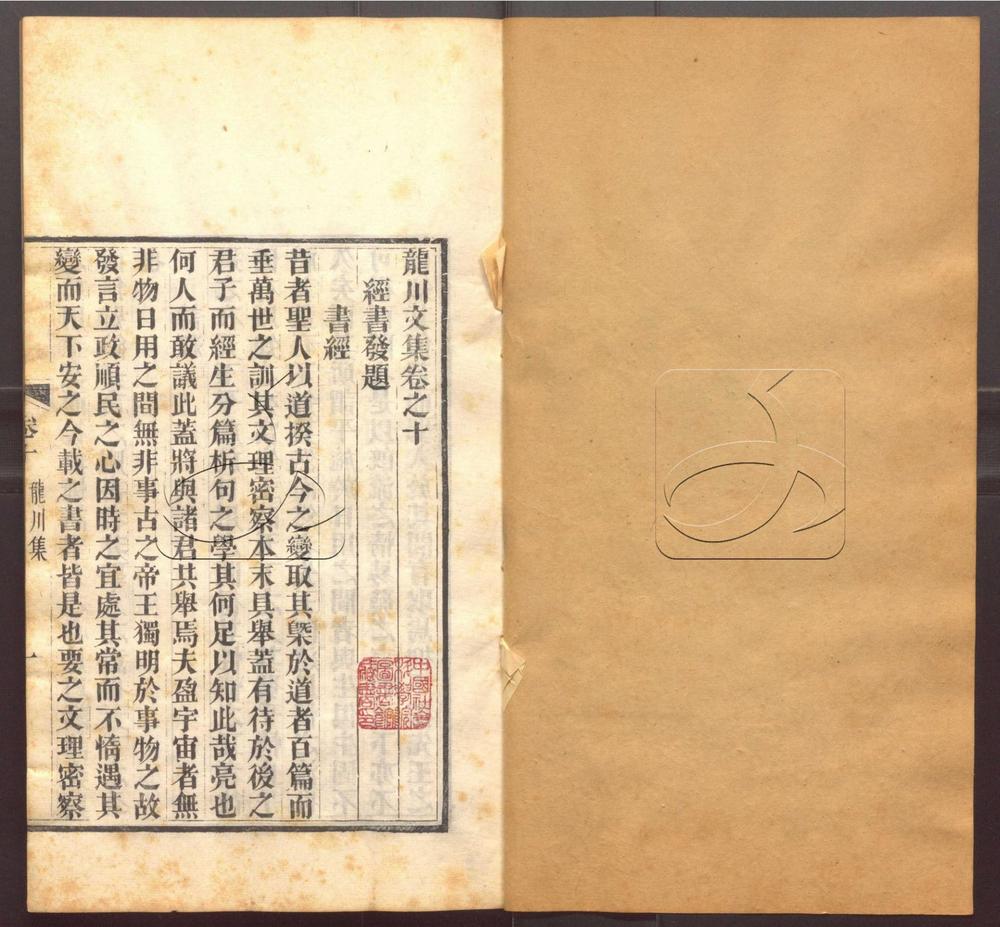 龍川文集卷之十
經書發題
書經
昔者聖人以道揆古今之變取其槩於道者百篇而
垂萬世之訓其文理密察本末具舉蓋有待於後之
君子而經生分篇析句之學其何足以知此哉亮也
何人而敢議此蓋將與諸君共舉焉夫盈宇宙者無
非物日用之間無非事古之帝王獨明於事物之故
發言立政順民之心因時之宜處其常而不惰遇其
變而天下安之今載之書者皆是也要之文理密察
卷十
龍川集
一